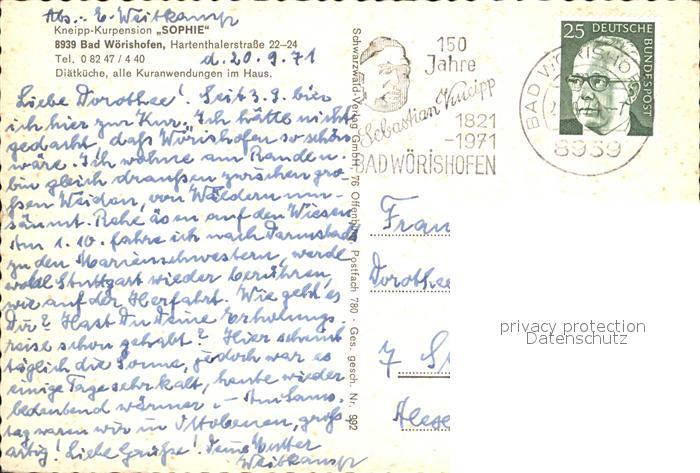 Abs.: E. Weitkamp
Kneipp-Kurpension „SOPHIE"
8939 Bad Wörishofen, Hartenthalerstraße 22–24
Tel. 0 82 47 / 4 40
d. 20. 9. 71
Diätküche, alle Kuranwendungen im Haus.
Liebe Dorothee! Seit 3. 9. bin
ich hier zur Kur. Ich hätte nicht
gedacht, daß Wörishofen so schön
wäre. Ich wohne am Rande u.
bin gleich draußen zwischen gro-
ßen Weiden, von Wäldern um-
säumt. Rehe äsen auf den Wiesen.
Am 1. 10. fahre ich nach Darmstadt
zu den Marienschwestern, werde
wohl Stuttgart wieder berühren,
wie auf der Herfahrt. Wie geht es
Dir? Hast Du Deine Erholungs-
reise schon gehabt? Hier scheint
täglich die Sonne, jedoch war es
einige Tage sehr kalt, heute wieder
bedeutend wärmer. – Am Sams-
tag waren wir in Ottobeuren, groß-
artig! Liebe Grüße! Deine
Weitkamp
Schwarzwald-Verlag GmbH, 76 Offenburg, Postfach 780 · Ges. gesch. Nr. 992
150
Jahre
Sebastian Kneipp
1821
-1971
BAD WÖRISHOFEN
25 DEUTSCHE
BUNDESPOST
BAD WÖRISHO
8939
Frau
Dorothee
7 St
privacy protection
Datenschutz